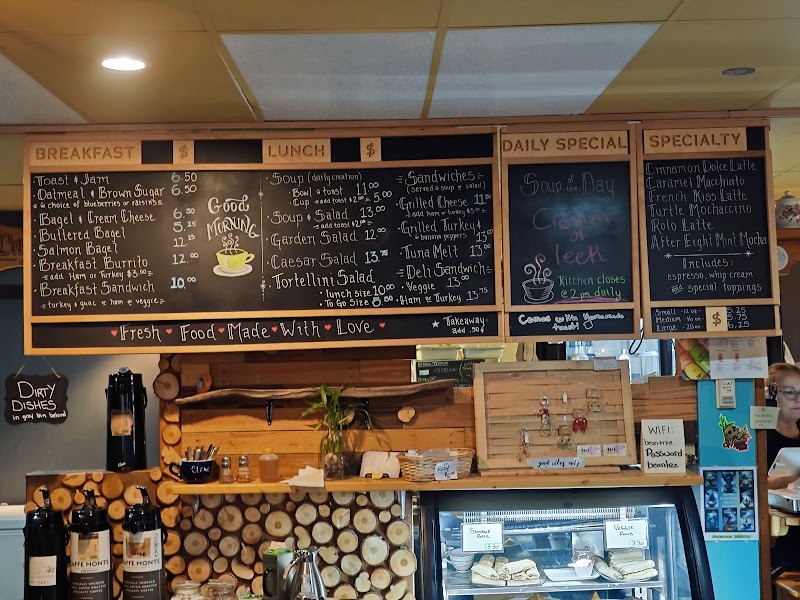 BREAKFAST $
Toast & Jam 6.50
Oatmeal & Brown Sugar 6.50
w/ choice of blueberries or raisins
Bagel & Cream Cheese 6.50
Buttered Bagel 5.25
Salmon Bagel 12.15
Breakfast Burrito 12.25
add Ham or Turkey $3.00
Breakfast Sandwich 10.00
turkey & guac or ham & veggie
Good
MORNING
LUNCH $
Soup (daily creation)
Bowl & toast 11.00
Cup add toast $2.00 5.00
Soup & Salad 13.00
add toast $2.00
Garden Salad 12.00
Caesar Salad 13.75
Tortellini Salad
lunch size 10.00
To Go Size 8.50
Sandwiches
(Served w/ soup or salad)
Grilled Cheese 11.00
add ham or turkey $3.00
Grilled Turkey
& banana peppers 13.00
Tuna Melt 13.00
Deli Sandwich
Veggie 13.00
Ham or Turkey 13.75
Fresh Food Made With Love
Takeaway
add .50¢
DAILY SPECIAL
Soup of the Day
Cream
of
leek
Kitchen closes
@ 2 pm daily
Comes with homemade
SPECIALTY
Cinnamon Dolce Latte
Caramel Macchiato
French Kiss Latte
Turtle Mochaccino
Rolo Latte
After Eight Mint Mocha
Includes:
espresso, whip cream
and special toppings
Small - 12 oz 5.25
Medium - 16 oz $ 5.75
Large - 20 oz 6.25
Dirty
Dishes
in grey bin behind
good vibes only
WIFI:
beantree
Password
beantree
Sausage
Roll
Veggie
Rolls
CAFFÈ MONTE
CAFFÈ MONTE